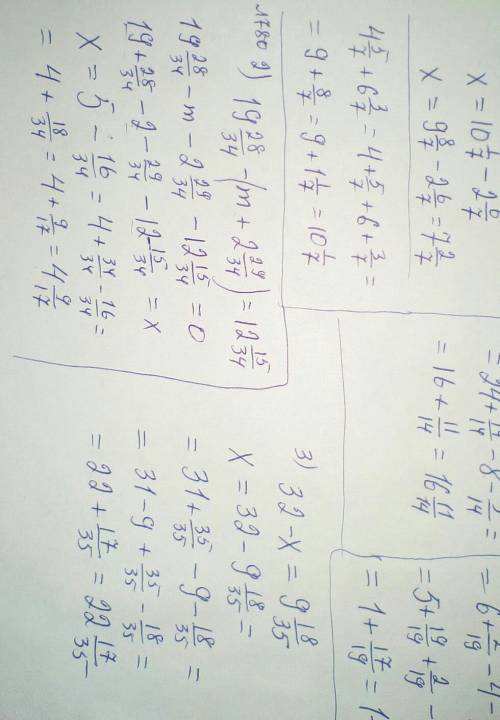 x = 10 1/7 - 2 6/7
x = 9 8/7 - 2 6/7 = 7 2/7
4 5/7 + 6 3/7 = 4 + 5/7 + 6 + 3/7 =
= 9 + 8/7 = 9 + 1 1/7 = 10 1/7
1780 2) 19 28/34 - (m + 2 29/34) = 12 15/34
19 28/34 - m - 2 29/34 - 12 15/34 = 0
19 + 28/34 - 2 - 29/34 - 12 - 15/34 = x
x = 5 - 16/34 = 4 + 34/34 - 16/34 =
= 4 + 18/34 = 4 + 9/17 = 4 9/17
= 16 + 11/14 = 16 11/14
3) 32 - x = 9 18/35
x = 32 - 9 18/35 =
= 31 + 35/35 - 9 - 18/35 =
= 31 - 9 + 35/35 - 18/35 =
= 22 + 17/35 = 22 17/35
= 6 + 2/19 - 4 -
= 5 + 19/19 + 2/19 -
= 1 + 17/19 = 1